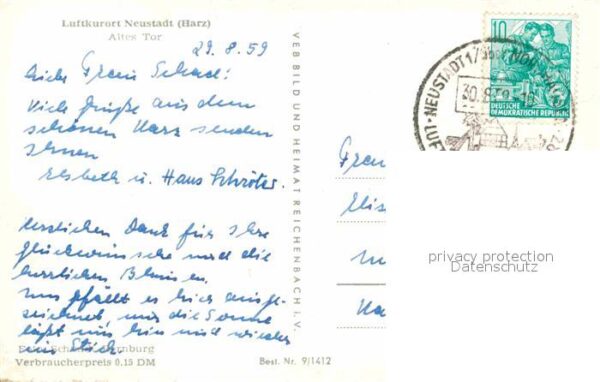 Luftkurort Neustadt (Harz)
Altes Tor
29.8.59
Liebe Frau Schael:
Viele Grüße aus dem
schönen Harz senden
Ihnen
Elsbeth u. Hans Schröter.
Herzlichen Dank für Ihre
Glückwünsche und die
herrlichen Blumen.
Uns gefällt es hier ausge-
zeichnet, nur die Sonne
läßt uns hin und wieder
im Stich.
Verbraucherpreis 0,15 DM
VEB BILD UND HEIMAT REICHENBACH I. V.
Best. Nr. 9/1412
10
DEUTSCHE
DEMOKRATISCHE REPUBLIK
NEUSTADT
30.8.59
Frau
privacy protection
Datenschutz